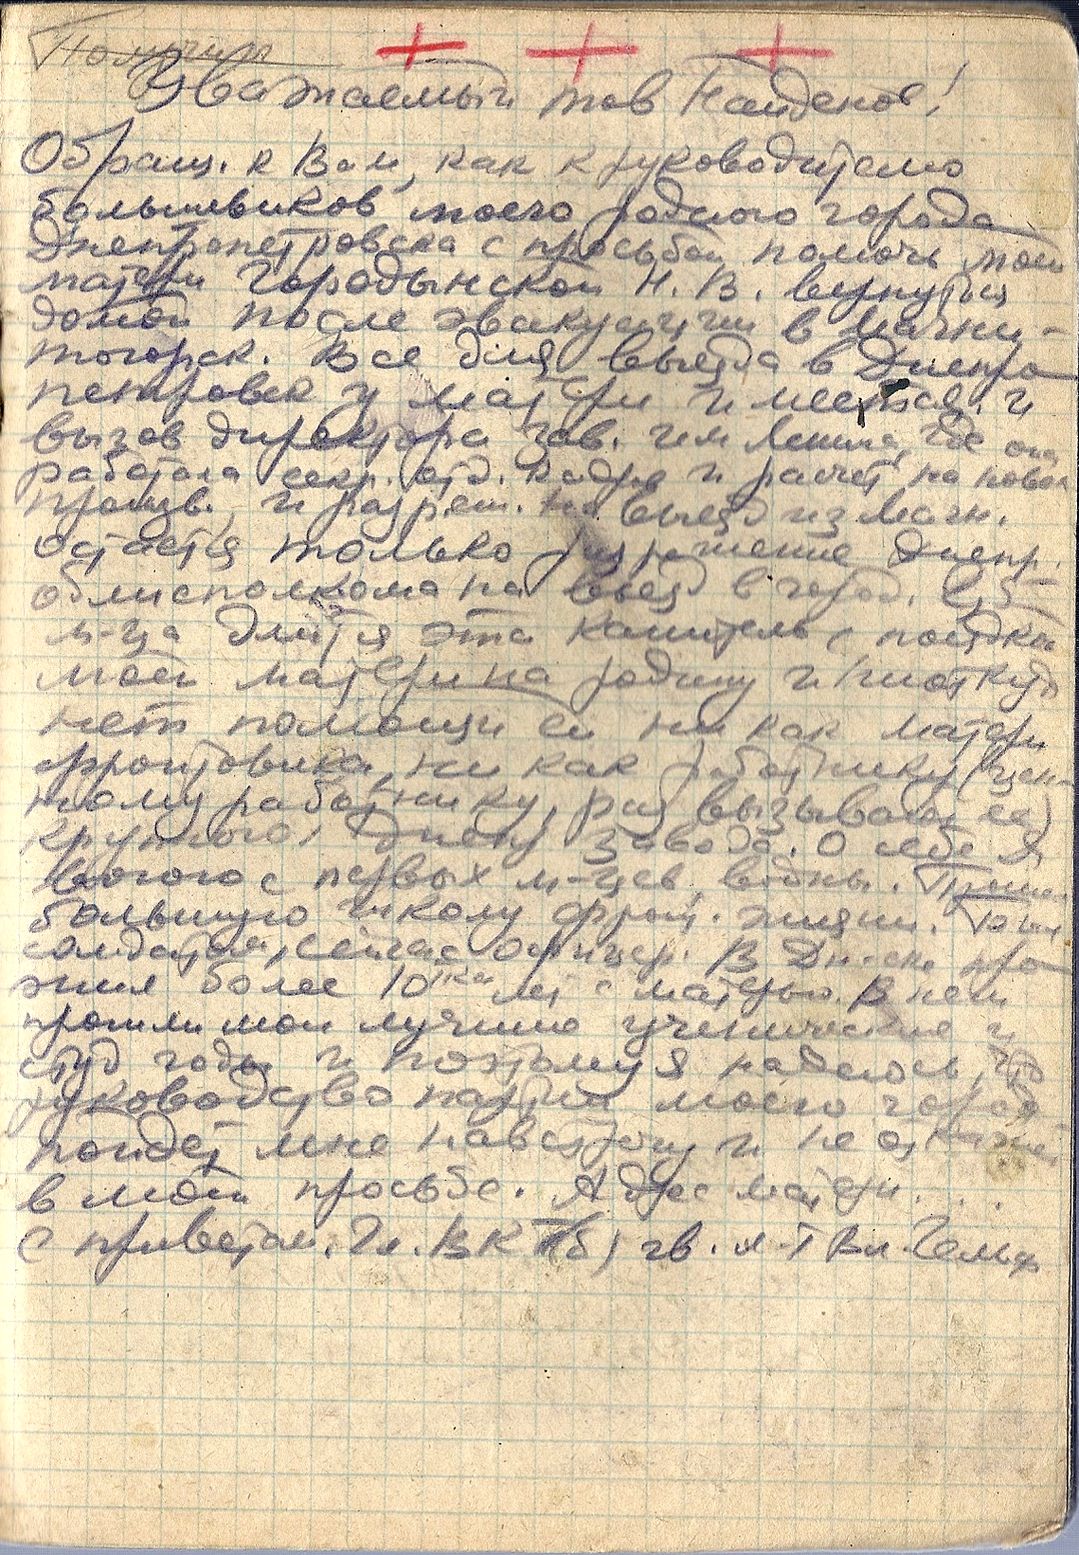 Уважаемый тов Найденов!
Обращ. к Вам, как к руководителю
большевиков моего родного города
Днепропетровска с просьбой помочь моей
матери Городынской Н. В. вернуться
домой после эвакуации в Магни-
тогорск. Все для выезда в Днепро
петровск у матери имеется. и
вызов директора зав. им Ленина, где она
работала секр. отд. кадров и расчет на новом
произв., и разреш. на выезд из Магн.
Остается только разрешение Днепр.
облисполкома на въезд в город.
м-ца длится эта канитель с поездкой
моей матери на родину и ниоткуда
нет помощи ей ни как матери
фронтовика, ни как работнику (цен-
ному работнику, раз вызывают ее)
крупного Днепр завода. О себе я
воюю с первых м-цев войны. Прошел
большую школу фронт. жизни. Был
солдатом, сейчас офицер. В Дн-ске про
жил более 10 лет с матерью. В нем
прошли мои лучшие ученические и
студ годы и поэтому я надеюсь, что
руководство партии моего города
пойдет мне навстречу и не откажет
в моей просьбе. Адрес матери . . .
с приветом. Чл. ВКП(б) гв. л-т Вл. Гельф